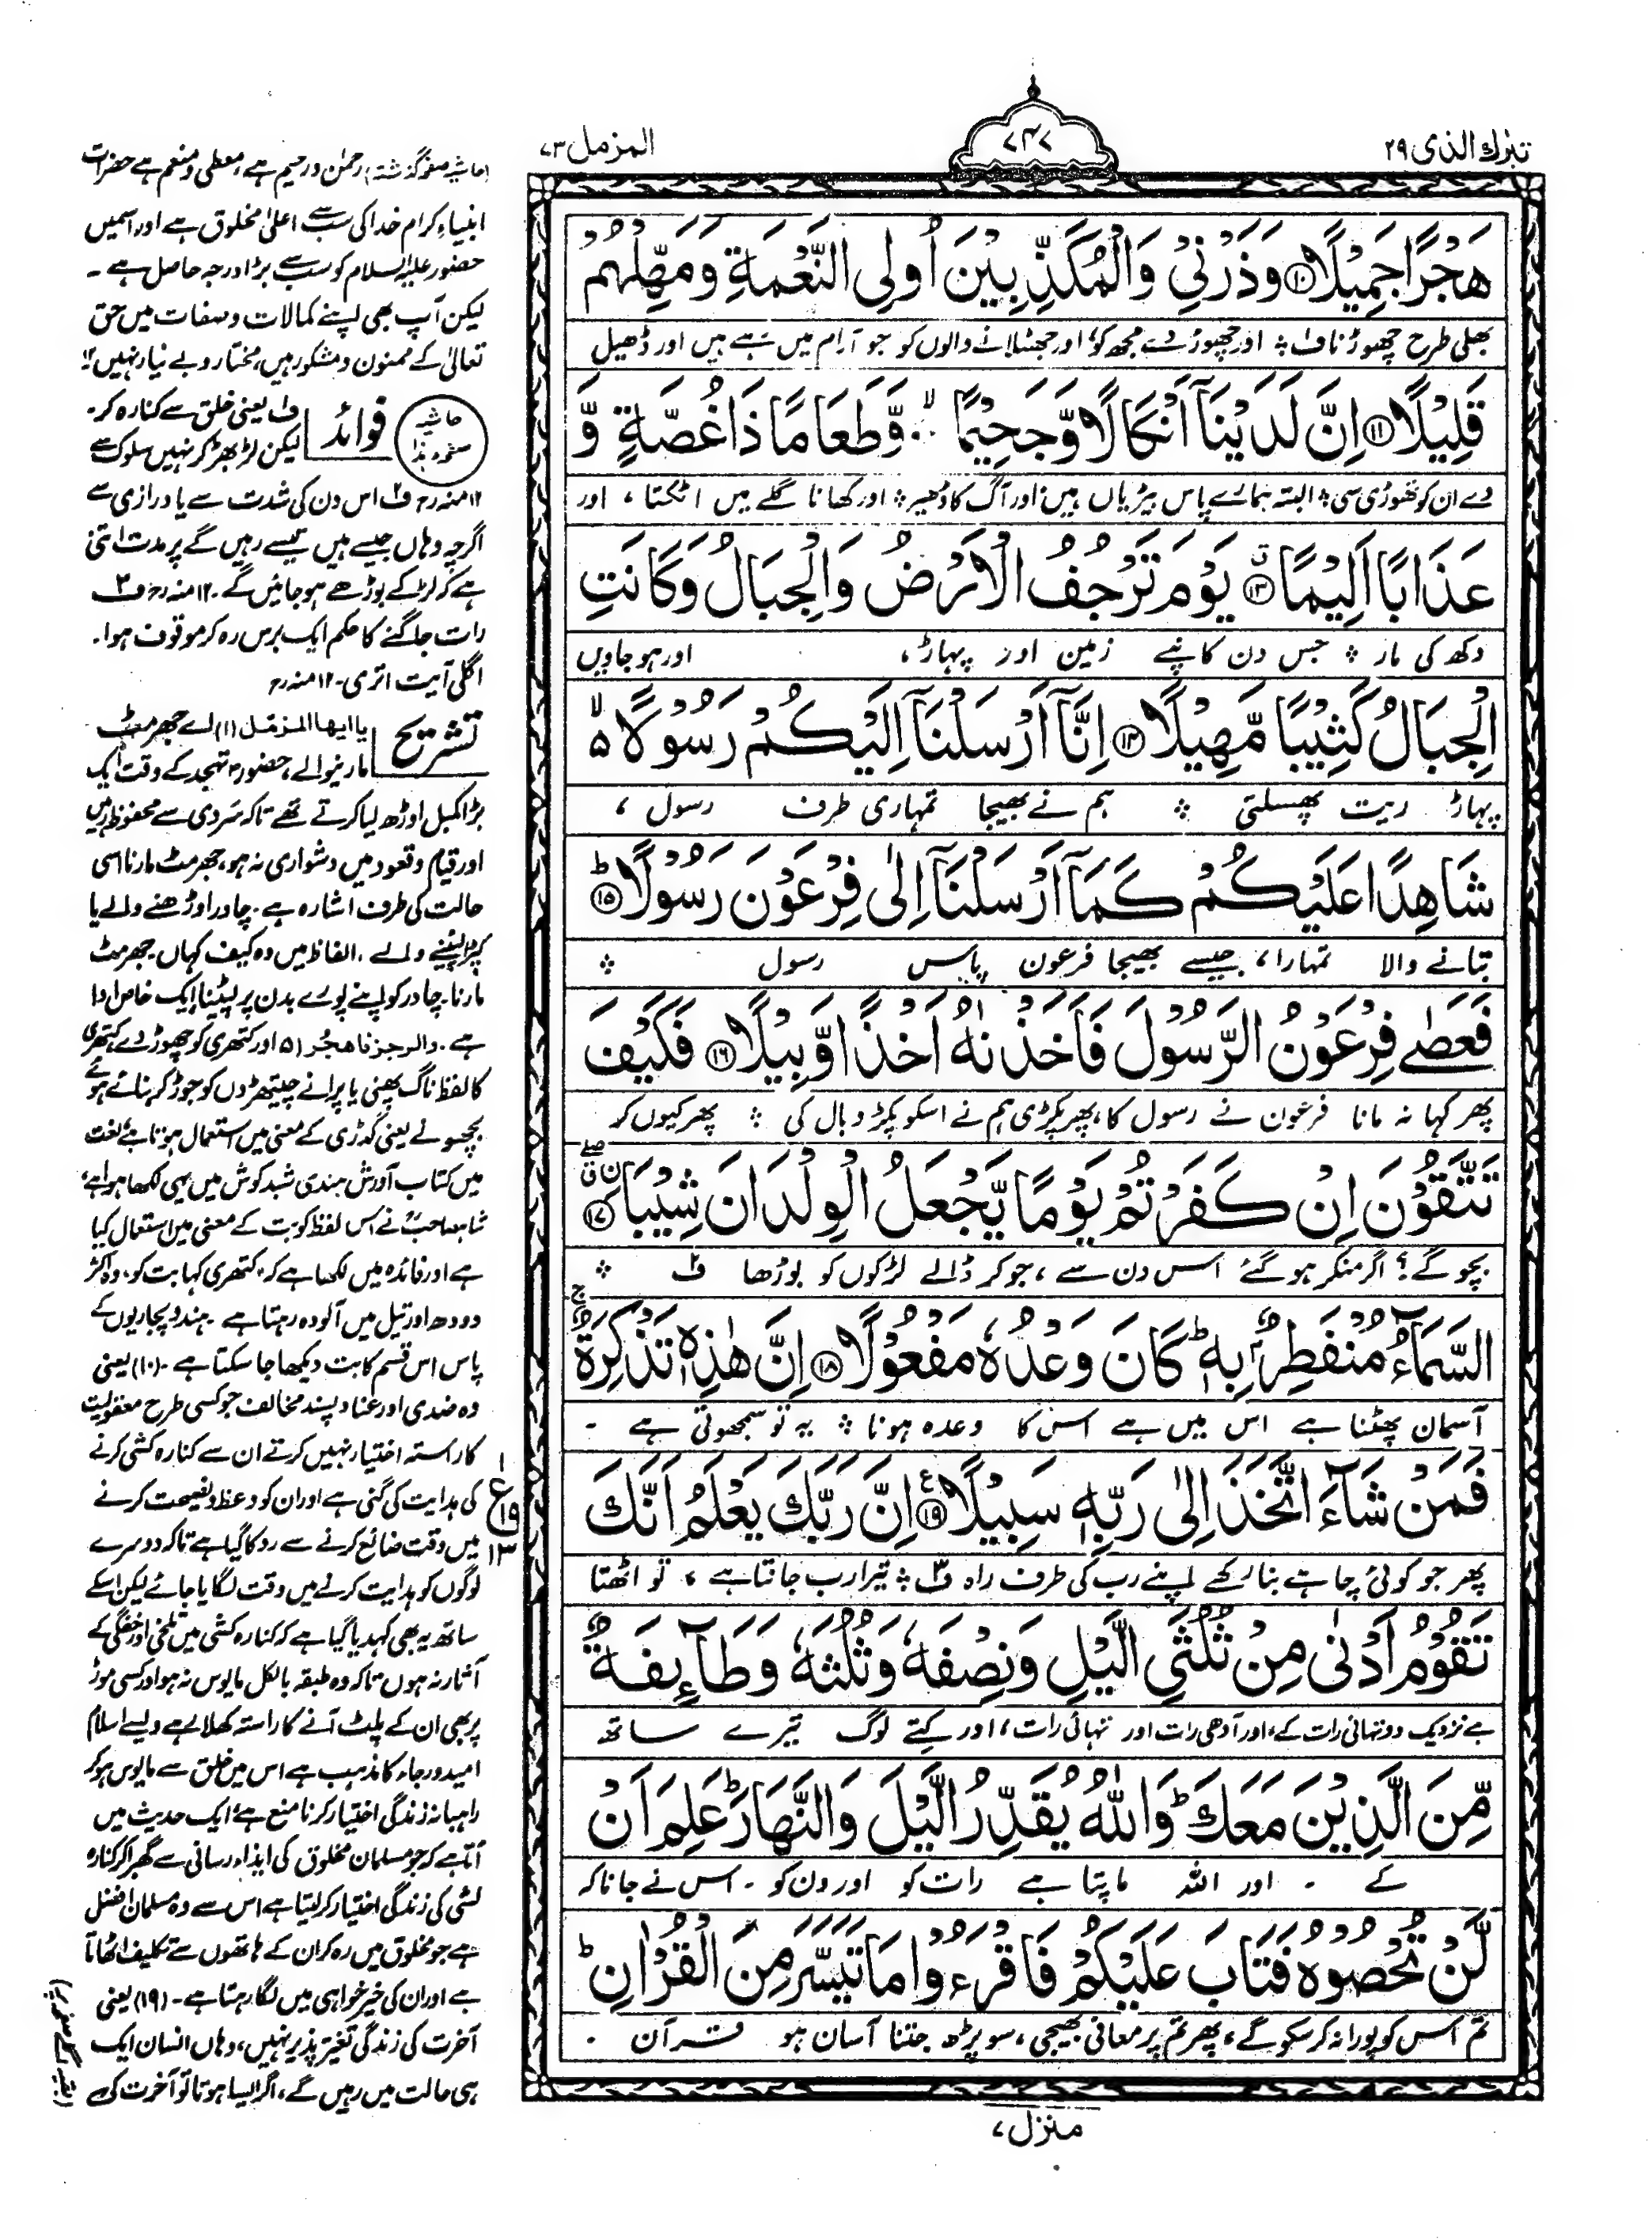 تبٰرك الذی ۲۹
۷۴۷
المزمل ۷۳
هَجْرًا جَمِيْلًا ۝۱۰ وَذَرْنِيْ وَالْمُكَذِّبِيْنَ اُولِى النَّعْمَةِ وَمَهِّلْهُمْ
بھلی طرح چھوڑنا ف۱ ؞ اور چھوڑ دے مجھ کو، اور جھٹلانے والوں کو جو آرام میں رہے ہیں اور ڈھیل
قَلِيْلًا ۝۱۱ اِنَّ لَدَيْنَآ اَنْكَالًا وَّجَحِيْمًا ۙ وَّطَعَامًا ذَا غُصَّةٍ وَّ
دے ان کو تھوڑی سی ؞ البتہ ہمارے پاس بیڑیاں ہیں اور آگ کا ڈھیر ؞ اور کھانا گلے میں اٹکتا، اور
عَذَابًا اَلِيْمًا ۝۱۳ يَوْمَ تَرْجُفُ الْاَرْضُ وَالْجِبَالُ وَكَانَتِ
دکھ کی مار ؞ جس دن کانپے زمین اور پہاڑ، اور ہو جاویں
الْجِبَالُ كَثِيْبًا مَّهِيْلًا ۝۱۴ اِنَّآ اَرْسَلْنَآ اِلَيْكُمْ رَسُوْلًا ۙ۵
پہاڑ ریت پھسلتی ؞ ہم نے بھیجا تمہاری طرف رسول،
شَاهِدًا عَلَيْكُمْ كَمَآ اَرْسَلْنَآ اِلٰى فِرْعَوْنَ رَسُوْلًا ۝۱۵ؕ
بتانے والا تمہارا، جیسے بھیجا فرعون پاس رسول ؞
فَعَصٰى فِرْعَوْنُ الرَّسُوْلَ فَاَخَذْنٰهُ اَخْذًا وَّبِيْلًا ۝۱۶ فَكَيْفَ
پھر کہا نہ مانا فرعون نے رسول کا، پھر پکڑی ہم نے اسکو پکڑ وبال کی ؞ پھر کیوں کر
تَتَّقُوْنَ اِنْ كَفَرْتُمْ يَوْمًا يَّجْعَلُ الْوِلْدَانَ شِيْبًا ۝۱۷
بچو گے؟ اگر منکر ہو گئے اس دن سے، جو کر ڈالے لڑکوں کو بوڑھا ف۲ ؞
السَّمَآءُ مُنْفَطِرٌۢ بِهٖ ؕ كَانَ وَعْدُهٗ مَفْعُوْلًا ۝۱۸ اِنَّ هٰذِهٖ تَذْكِرَةٌ ۚ
آسمان پھٹنا ہے اس میں ہے اس کا وعدہ ہونا ؞ یہ تو سمجھوتی ہے ۔
فَمَنْ شَآءَ اتَّخَذَ اِلٰى رَبِّهٖ سَبِيْلًا ۝۱۹ اِنَّ رَبَّكَ يَعْلَمُ اَنَّكَ
پھر جو کوئی چاہے بنا رکھے اپنے رب کی طرف راہ ف۳ ؞ تیرا رب جانتا ہے، تو اٹھتا
تَقُوْمُ اَدْنٰى مِنْ ثُلُثَىِ الَّيْلِ وَنِصْفَهٗ وَثُلُثَهٗ وَطَآئِفَةٌ
ہے نزدیک دو تہائی رات کے، اور آدھی رات اور تہائی رات، اور کتے لوگ تیرے ساتھ
مِّنَ الَّذِيْنَ مَعَكَ ؕ وَاللّٰهُ يُقَدِّرُ الَّيْلَ وَالنَّهَارَ ؕ عَلِمَ اَنْ
کے ۔ اور اللہ ماپتا ہے رات کو اور دن کو ۔ اس نے جانا کہ
لَّنْ تُحْصُوْهُ فَتَابَ عَلَيْكُمْ فَاقْرَءُوْا مَا تَيَسَّرَ مِنَ الْقُرْاٰنِ ؕ
تم اس کو پورا نہ کر سکو گے، پھر تم پر معافی بھیجی، سو پڑھو جتنا آسان ہو قرآن ۔
منزل ۷
(حاشیہ صفحہ گذشتہ) رحمٰن و رحیم ہے، معطی و منعم ہے حضرات
انبیاء کرام خدا کی سب سے اعلیٰ مخلوق ہے اور اسمیں
حضور علیہ السلام کو سب سے بڑا درجہ حاصل ہے ۔
لیکن آپ بھی اپنے کمالات و صفات میں حق
تعالیٰ کے ممنون و مشکور ہیں، مختار و بے نیاز نہیں ۱۲
حاشیہ صفحہ ہذا
فوائد
ف۱ یعنی خلق سے کنارہ کر۔
لیکن لڑ بھڑ کر نہیں سلوک سے
۱۲ منہ رح ف۲ اس دن کی شدت سے یا درازی سے
اگرچہ وہاں جیسے ہیں تیسے رہیں گے پر مدت اتنی
ہے کہ لڑکے بوڑھے ہو جائیں گے ۔ ۱۲ منہ رح ف۳
رات جاگنے کا حکم ایک برس رہ کر موقوف ہوا۔
اگلی آیت اتری۔ ۱۲ منہ رح
تشریح
یا ایها المزمل (۱) اے جھرمٹ
مارنیوالے، حضور تہجد کے وقت ایک
بڑا کمبل اوڑھ لیا کرتے تھے تاکہ سردی سے محفوظ رہیں
اور قیام و قعود میں دشواری نہ ہو، جھرمٹ مارنا اسی
حالت کی طرف اشارہ ہے۔ چادر اوڑھنے والے یا
کپڑا لپیٹنے والے ۔ الفاظ میں وہ کیف کہاں۔ جھرمٹ
مارنا۔ چادر کو اپنے پورے بدن پر لپیٹنا ایک خاص ادا
ہے۔ والرجز فاهجر (۵) اور کتھری کو چھوڑ دے، کتھری
کا لفظ ناگ پھنی یا پرانے چیتھڑوں کو جوڑ کر بنائے ہوئے
بچھونے یعنی گدڑی کے معنی میں استعمال ہوتا ہے لغت
میں کتاب آدرش ہندی شبد کوش میں یہی لکھا ہوا ہے
شاہصاحبؒ نے اس لفظ کو بت کے معنی میں استعمال کیا
ہے اور فائدہ میں لکھا ہے کہ، کتھری کہا بت کو، وہ اکثر
دودھ اور تیل میں آلودہ رہتا ہے ۔ ہندو پجاریوں کے
پاس اس قسم کا بت دیکھا جا سکتا ہے ۔ (۱۰) یعنی
وہ ضدی اور عناد پسند مخالف جو کسی طرح معقولیت
کا راستہ اختیار نہیں کرتے ان سے کنارہ کشی کرنے
کی ہدایت کی گئی ہے اور ان کو وعظ و نصیحت کرنے
میں وقت ضائع کرنے سے روکا گیا ہے تاکہ دوسرے
لوگوں کو ہدایت کرنے میں وقت لگایا جائے لیکن اسکے
ساتھ یہ بھی کہدیا گیا ہے کہ کنارہ کشی میں تلخی اور خفگی کے
آثار نہ ہوں تاکہ وہ طبقہ بالکل مایوس نہ ہو اور کسی موڑ
پر بھی ان کے پلٹ آنے کا راستہ کھلا رہے ویسے اسلام
امید و رجاء کا مذہب ہے اس میں خلق سے مایوس ہو کر
راہبانہ زندگی اختیار کرنا منع ہے، ایک حدیث میں
آتا ہے کہ جو مسلمان مخلوق کی ایذاء رسانی سے گھبرا کر کنارہ
کشی کی زندگی اختیار کر لیتا ہے اس سے وہ مسلمان افضل
ہے جو مخلوق میں رہ کر ان کے ہاتھوں سے تکلیف اٹھاتا
ہے اور ان کی خیر خواہی میں لگا رہتا ہے ۔ (۱۹) یعنی
آخرت کی زندگی تغیر پذیر نہیں، وہاں انسان ایک
ہی حالت میں رہیں گے، اگر ایسا ہوتا تو آخرت کی
(بقیہ اگلے صفحہ پر)
۱
ع
۱۹
۱۳